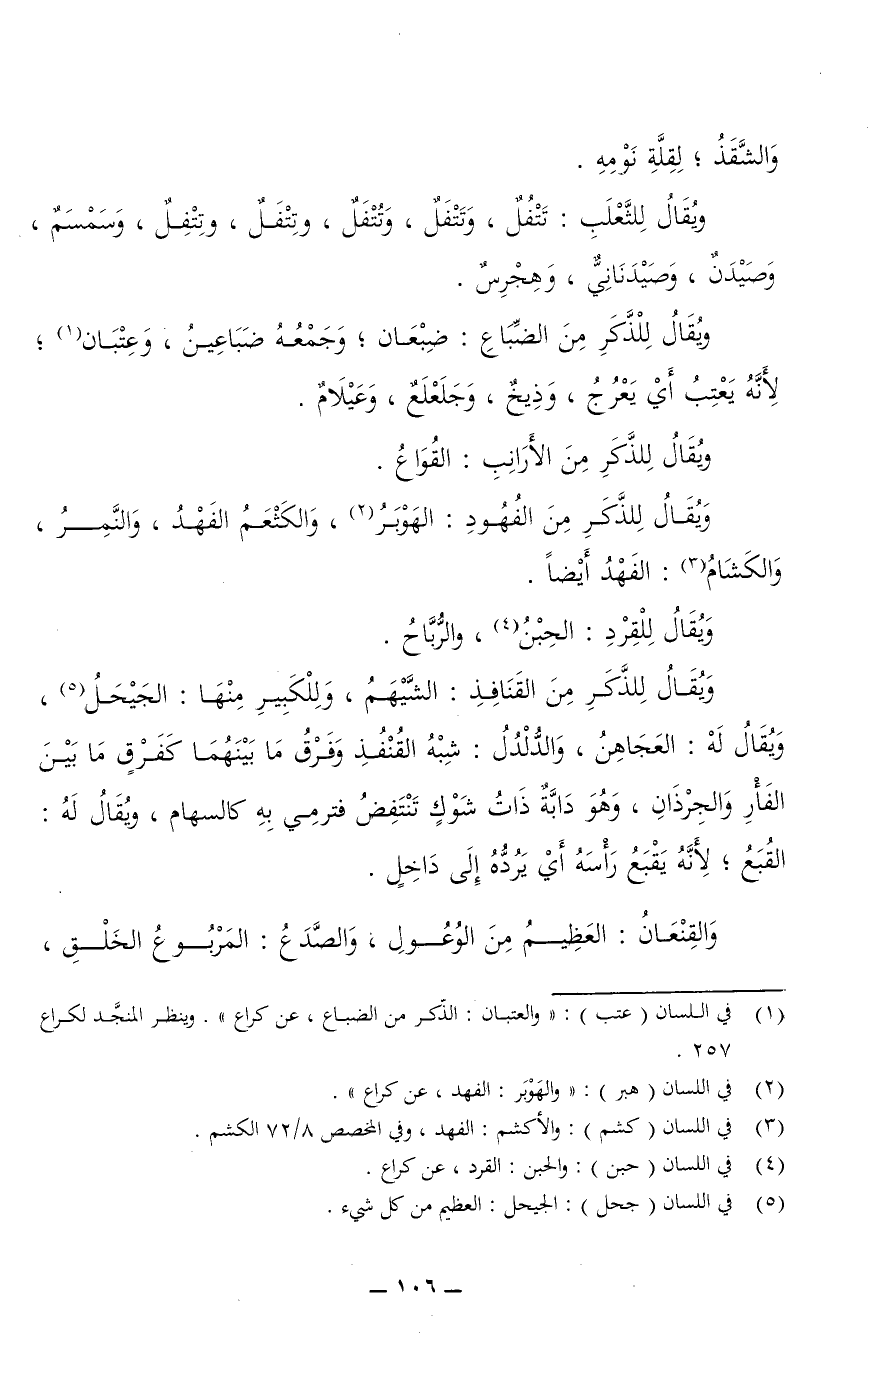 وَالشَّقَذُ ؛ لِقِلَّةِ نَوْمِهِ .
ويُقَالُ لِلثَّعْلَبِ : تَتْفُلٌ ، وَتَتْفَلٌ ، وَتُتْفَلٌ ، وتِتْفَـلٌ ، وتِتْفِـلٌ ، وَسَمْسَمٌ ،
وَصَيْدَنٌ ، وَصَيْدَنَانِيٌّ ، وَهِجْرِسٌ .
ويُقَالُ لِلْذَّكَرِ مِنَ الضِّبَّاعِ : ضِبْعَـان ؛ وَجَمْعُـهُ ضَبَاعِيـنُ ، وَعِتْبَـان(١) ؛
لِأَنَّهُ يَعْتِبُ أَيْ يَعْرُجُ ، وَذِيخٌ ، وَجَلَعْلَعٌ ، وَعَيْلَامٌ .
ويُقَالُ لِلذَّكَرِ مِنَ الأَرَانِبِ : القُوَاعُ .
وَيُقَـالُ لِلذَّكَـرِ مِنَ الفُهُـودِ : الهَوْبَـرُ(٢) ، وَالكَثْعَـمُ الفَهْـدُ ، وَالنَّمِـــرُ ،
وَالكَشَامُ(٣) : الفَهْدُ أَيْضاً .
وَيُقَالُ لِلْقِرْدِ : الحِبْنُ(٤) ، والرُّبَّاحُ .
وَيُقَـالُ لِلذَّكَـرِ مِنَ القَنَافِـذِ : الشَّيْهَـمُ ، وَلِلْكَبِيـرِ مِنْهَـا : الجَيْحَـلُ(٥) ،
وَيُقَالُ لَهْ : العَجَاهِنُ ، وَالدُّلْدُلُ : شِبْهُ القُنْفُـذِ وَفَـرْقُ مَا بَيْنَهُمَـا كَفَـرْقٍ مَا بَيْـنَ
الفَأْرِ وَالجِرْذَانِ ، وَهُوَ دَابَّةٌ ذَاتُ شَوْكٍ تَنْتَفِضُ فترمِـي بِهِ كالسهام ، ويُقَالُ لَهُ :
القُبَعُ ؛ لِأَنَّهُ يَقْبَعُ رَأْسَهُ أَيْ يَرُدُّهُ إِلَى دَاخِلٍ .
وَالقِنْعَـانُ : العَظِيـــمُ مِنَ الوُعُـــولِ ، وَالصَّدَعُ : المَرْبُـــوعُ الخَلْـــقِ ،
(١) في اللـسان ( عتب ) : « والعتبـان : الذّكـر من الضبـاع ، عن كراع » . وينظـر المنجَّـد لكـراع
٢٥٧ .
(٢) في اللسان ( هبر ) : « والهَوْبَر : الفهد ، عن كراع » .
(٣) في اللسان ( كشم ) : والأكشم : الفهد ، وفي المخصص ٧٢/٨ الكشم .
(٤) في اللسان ( حبن ) : والحبن : القرد ، عن كراع .
(٥) في اللسان ( جحل ) : الجيحل : العظيم من كل شيء .
ــ ١٠٦ ــ